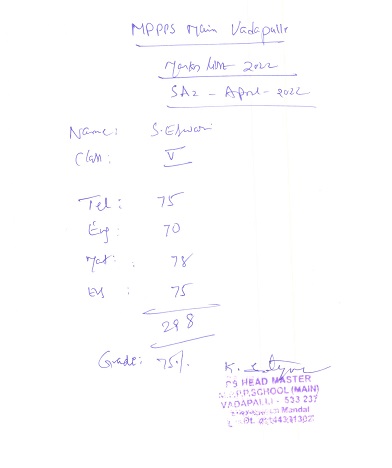 MPPPS Main Vadapalli
Marks list 2022
SA2 - April - 2022
Name: S. Eswari
Class: V
Tel: 75
Eng: 70
Mat: 78
EVS 75
298
Grade: 75%
HEAD MASTER
SCHOOL (MAIN)
VADAPALLI - 533 237
Mandal